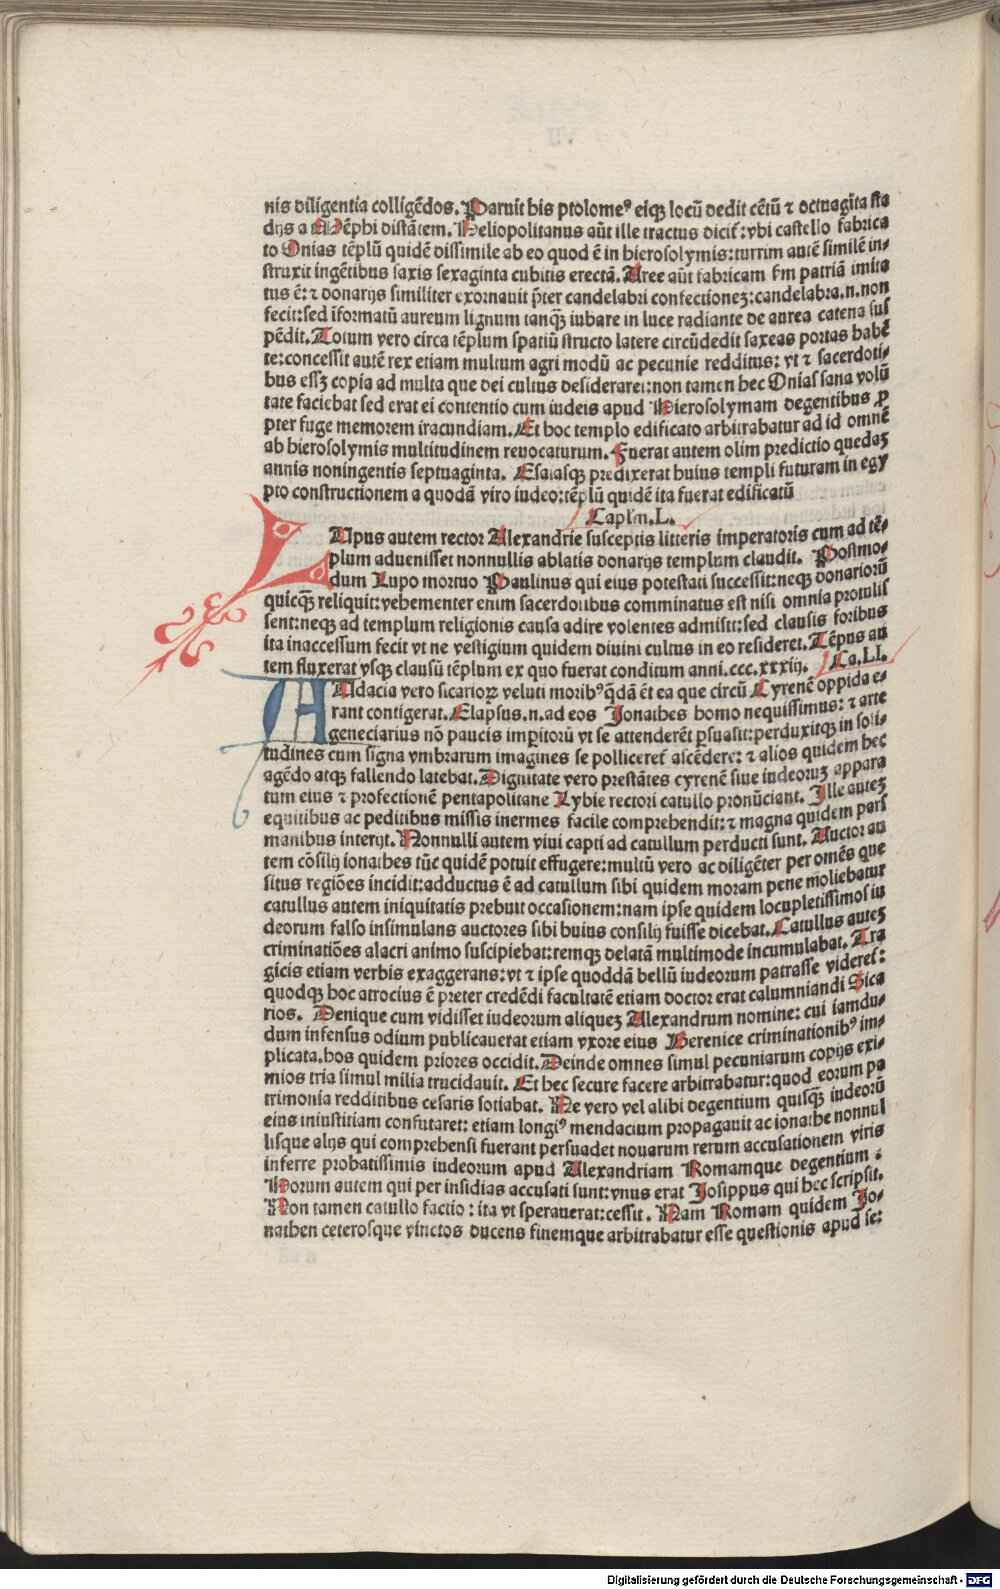 nis diligentia colligēdos. Paruit his ptolomeꝰ eiqꝫ locū dedit cētū ⁊ octuagīta sta
dijs a Mēphi distātem. Heliopolitanus aūt ille tractus dicit᷑: vbi castello fabrica
to Onias tēplū quidē dissimile ab eo quod ē in hierosolymis: turrim autē similē in-
struxit ingētibus saxis sexaginta cubitis erectā. Aree aūt fabricam s̄m patriā imita
tus ē: ⁊ donarijs similiter exornauit p̄ter candelabri confectioneꝫ: candelabra.n.non
fecit: sed īformatū aureum lignum tanqꝫ̄ iubare in luce radiante de aurea catena sus
pēdit. Totum vero circa tēplum spatiū structo latere circūdedit saxeas portas habē
te: concessit autē rex etiam multum agri modū ac pecunie redditus: vt ⁊ sacerdoti-
bus esset copia ad multa que dei cultus desideraret: non tamen hec Onias sana volū
tate faciebat sed erat ei contentio cum iudeis apud Hierosolymam degentibus ꝓ
pter fuge memorem iracundiam. Et hoc templo edificato arbitrabatur ad id omnē
ab hierosolymis multitudinem reuocaturum. Fuerat autem olim predictio quedaꝫ
annis noningentis septuaginta. Esaiasqꝫ predixerat huius templi futuram in egy
pto constructionem a quodā viro iudeo: tēplū quidē ita fuerat edificatū
Caplm̄.L.
LApus autem rector Alexandrie susceptis litteris imperatoris cum ad tē-
plum aduenisset nonnullis ablatis donarijs templum claudit. Postmo-
dum Lupo mortuo Paulinus qui eius potestati successit: neqꝫ donariorū
quicqꝫ̄ reliquit: vehementer enim sacerdotibus comminatus est nisi omnia protulis
sent: neqꝫ ad templum religionis causa adire volentes admisit: sed clausis foribus
ita inaccessum fecit vt ne vestigium quidem diuini cultus in eo resideret. Tēpus au
tem fluxerat vsqꝫ clausū tēplum ex quo fuerat conditum anni.ccc.xxxiij. Ca.LI.
AAdacia vero sicarioꝝ veluti moribꝰ q̄dā ēt ea que circū Cyrenē oppida e-
rant contigerat. Elapsus.n.ad eos Jonathes homo nequissimus: ⁊ arte
geneciarius nō paucis imꝑitorū vt se attenderēt ꝑsuasit: perduxitqꝫ in soli-
tudines cum signa vmbrarum imagines se polliceret᷑ ascēdere: ⁊ alios quidem hec
agēdo atqꝫ fallendo latebat. Dignitate vero prestātes cyrenē siue iudeoruꝫ appara
tum eius ⁊ profectionē pentapolitane Lybie rectori catullo pronūciant. Ille auteꝫ
equitibus ac peditibus missis inermes facile comprehendit: ⁊ magna quidem pars
manibus interijt. Nonnulli autem viui capti ad catullum perducti sunt. Auctor au
tem cōsilij ionathes tūc quidē potuit effugere: multū vero ac diligēter per omēs que
situs regiōes incidit: adductus ē ad catullum sibi quidem moram pene moliebatur
catullus autem iniquitatis prebuit occasionem: nam ipse quidem locupletissimos iu
deorum falso insimulans auctores sibi huius consilij fuisse dicebat. Catullus auteꝫ
criminatiōes alacri animo suscipiebat: remqꝫ delatā multimode incumulabat. Tra
gicis etiam verbis exaggerans: vt ⁊ ipse quoddā bellū iudeorum patrasse videret᷑:
quodqꝫ hoc atrocius ē preter credēdi facultatē etiam doctor erat calumniandi Sica
rios. Denique cum vidisset iudeorum aliqueꝫ Alexandrum nomine: cui iamdu-
dum infensus odium publicauerat etiam vxore eius Berenice criminationibꝰ im-
plicata. hos quidem priores occidit. Deinde omnes simul pecuniarum copijs exi-
mios tria simul milia trucidauit. Et hec secure facere arbitrabatur: quod eorum pa
trimonia redditibus cesaris sotiabat. Ne vero vel alibi degentium quisqꝫ̄ iudeorū
eius iniustitiam confutaret: etiam longiꝰ mendacium propagauit ac ionathe nonnul
lisque alijs qui comprehensi fuerant persuadet nouarum rerum accusationem viris
inferre probatissimis iudeorum apud Alexandriam Romamque degentium:
Horum autem qui per insidias accusati sunt: vnus erat Josippus qui hec scripsit.
Non tamen catullo factio: ita vt sperauerat: cessit. Nam Romam quidem Jo-
nathen ceterosque vinctos ducens finemque arbitrabatur esse questionis apud se:
Digitalisierung gefördert durch die Deutsche Forschungsgemeinschaft - DFG